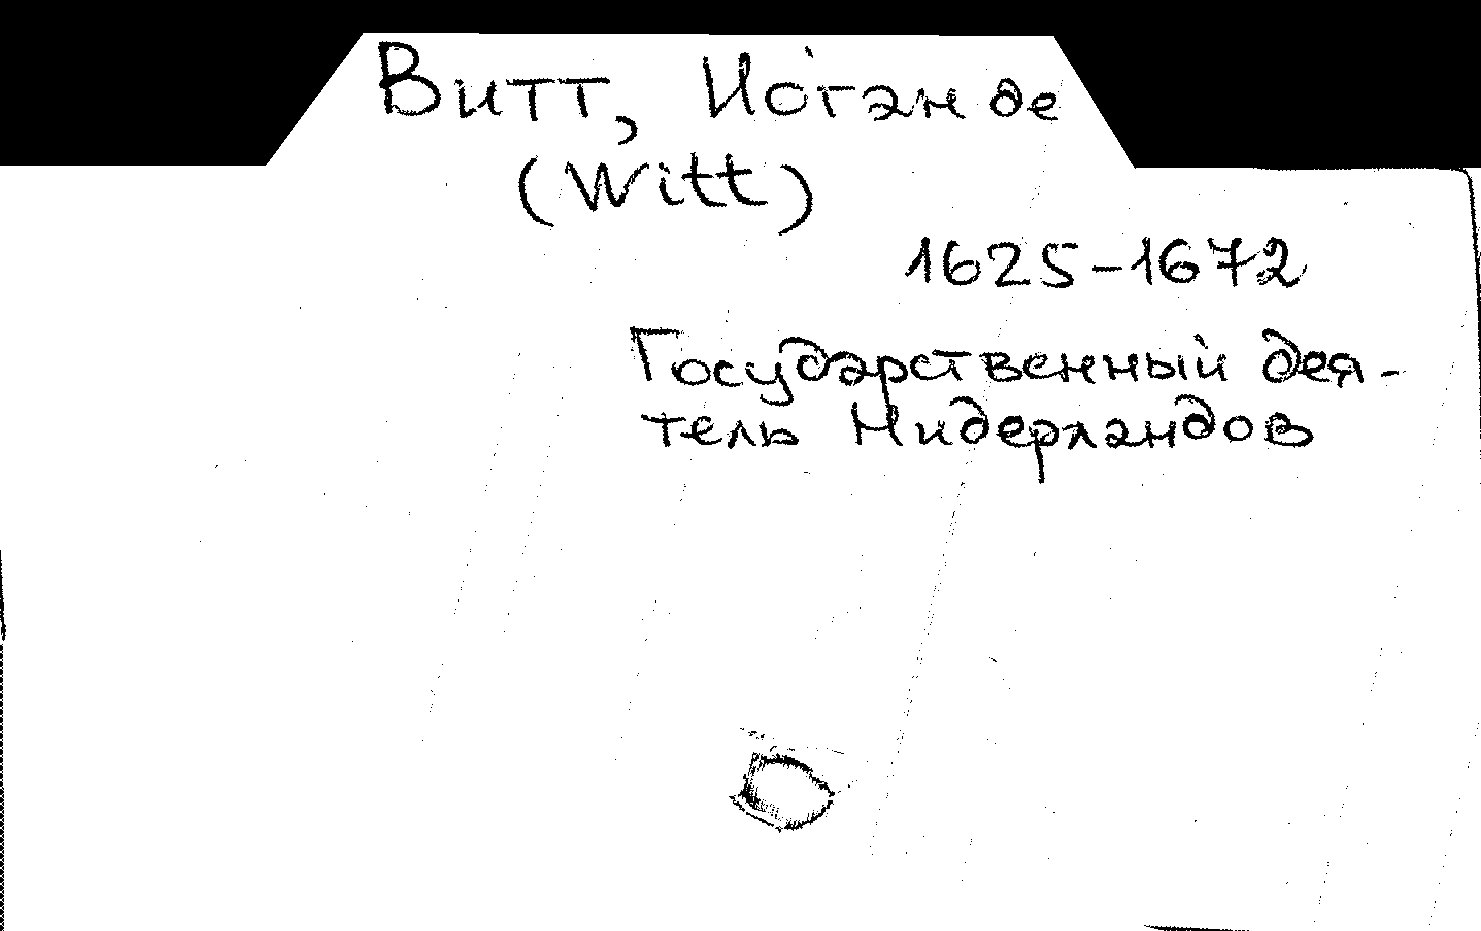 Витт, Иóган де
(Witt)
1625-1672
Государственный дея-
тель Нидерландов